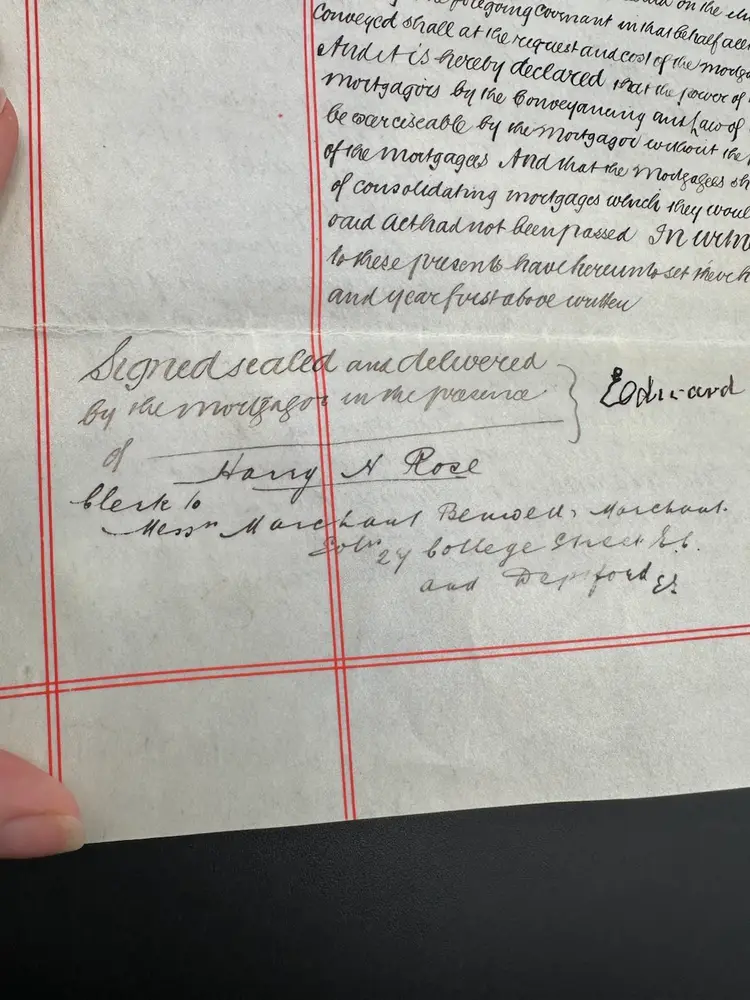 the foregoing covenant in that behalf
Conveyed shall at the request and cost of the
And it is hereby declared that the power of
mortgagors by the Conveyancing and Law of
be exerciseable by the Mortgagor without the
of the Mortgagees And that the Mortgagees
of consolidating mortgages which they
said Act had not been passed In
to these presents have hereunto set their
and year first above written
Signed sealed and delivered
by the mortgagor in the presence
of
Edward
Harry N Rose
Clerk to
Messrs Marchant Benwell & Marchant
Solrs 27 College Street E.C.
and Deptford